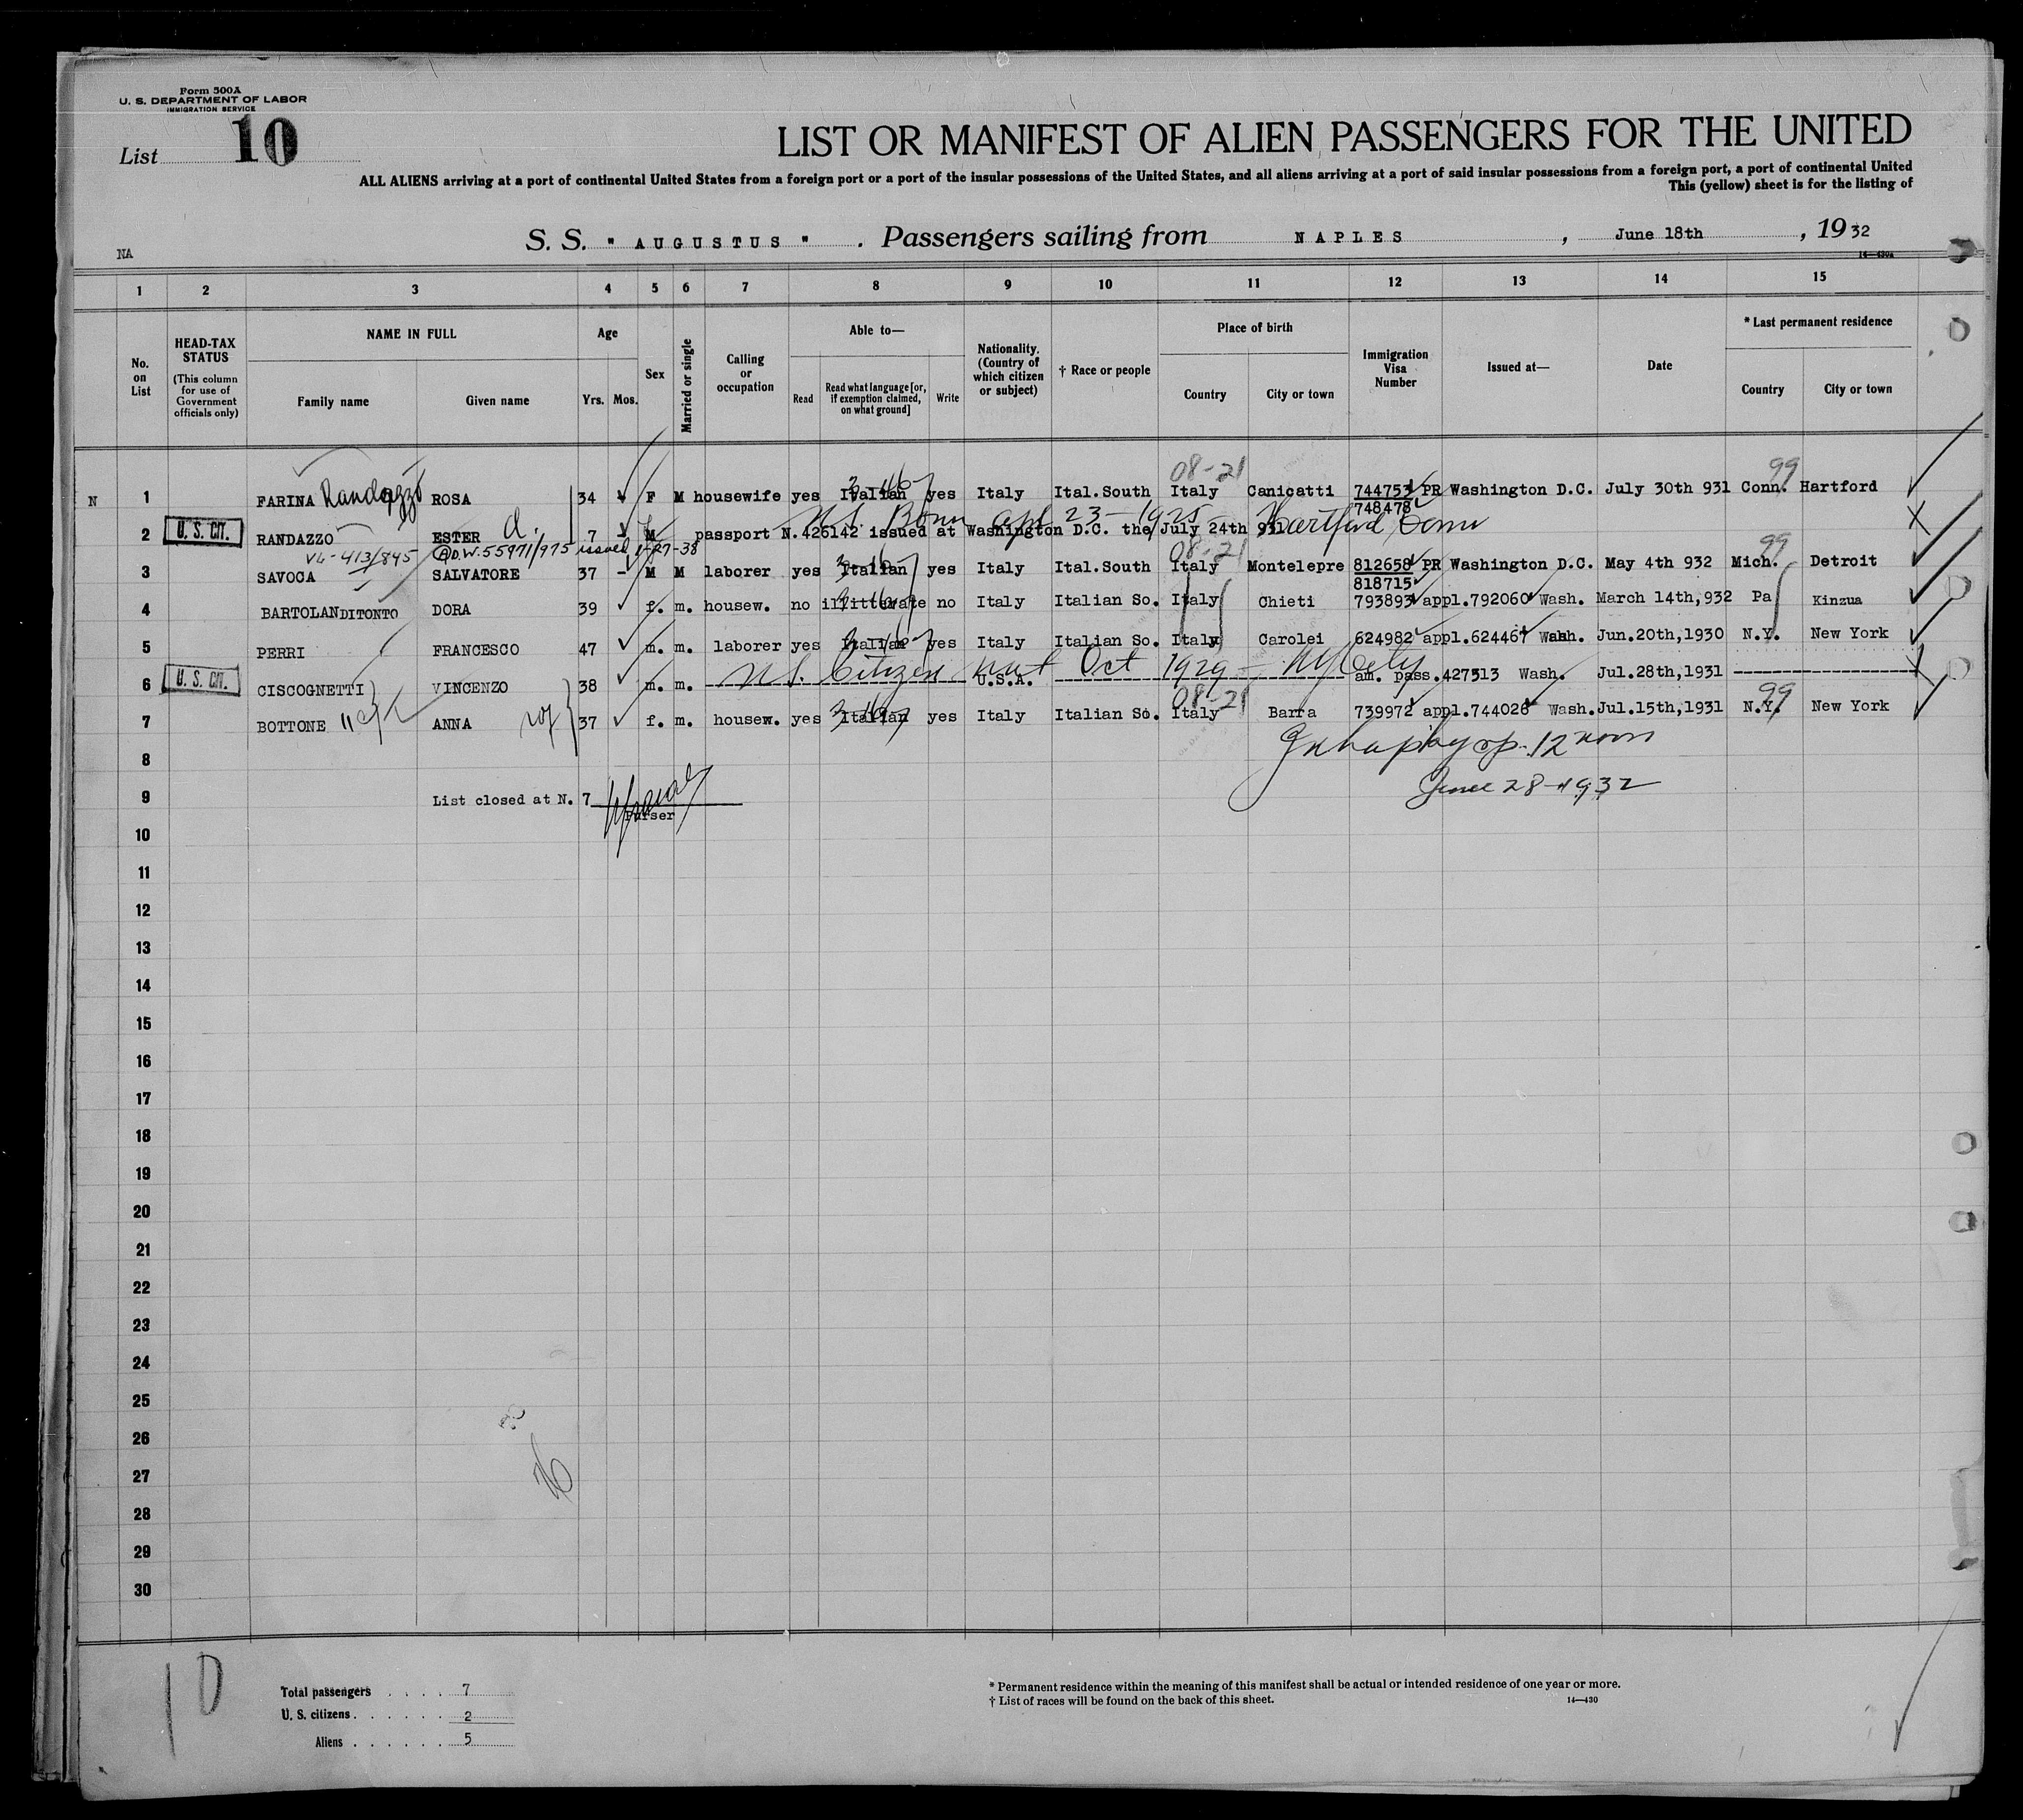 Form 500A
U. S. DEPARTMENT OF LABOR
IMMIGRATION SERVICE
List 10
LIST OR MANIFEST OF ALIEN PASSENGERS FOR THE UNITED
ALL ALIENS arriving at a port of continental United States from a foreign port or a port of the insular possessions of the United States, and all aliens arriving at a port of said insular possessions from a foreign port, a port of continental United
This (yellow) sheet is for the listing of
S. S. " AUGUSTUS " . Passengers sailing from NAPLES , June 18th , 1932
NA
14—430A
1 2 3 4 5 6 7 8 9 10 11 12 13 14 15
No. on List
HEAD-TAX STATUS (This column for use of Government officials only)
NAME IN FULL Family name Given name
Age Yrs. Mos.
Sex
Married or single
Calling or occupation
Able to— Read Read what language [or, if exemption claimed, on what ground] Write
Nationality. (Country of which citizen or subject)
† Race or people
Place of birth Country City or town
Immigration Visa Number
Issued at—
Date
* Last permanent residence Country City or town
08-21 99
N 1 FARINA Randazzo ROSA 34 F M housewife yes Italian yes Italy Ital.South Italy Canicatti 744753 PR Washington D.C. July 30th 931 Conn. Hartford
748478
U.S. Born apl 23-1925 - Hartford Conn
2 U. S. CIT. RANDAZZO ESTER a. 7 M passport N.426142 issued at Washington D.C. the July 24th 931
VL-413/845 55971/975 issued 1-27-38
08-21 99
3 SAVOCA SALVATORE 37 - M M laborer yes Italian yes Italy Ital.South Italy Montelepre 812658 PR Washington D.C. May 4th 932 Mich. Detroit
818715
4 BARTOLANDITONTO DORA 39 f. m. housew. no illitterate no Italy Italian So. Italy Chieti 793893 appl.792060 Wash. March 14th,932 Pa Kinzua
5 PERRI FRANCESCO 47 m. m. laborer yes Italian yes Italy Italian So. Italy Carolei 624982 appl.624467 Wash. Jun.20th,1930 N.Y. New York
U.S. Citizen nat Oct 1929 - NyCity
6 U. S. CIT. CISCOGNETTI VINCENZO 38 m. m. U.S.A. am. pass.427313 Wash. Jul.28th,1931
08-21 99
7 BOTTONE ANNA 37 f. m. housew. yes Italian yes Italy Italian So. Italy Barra 739972 appl.744028 Wash. Jul.15th,1931 N.Y. New York
8 12 noon
9 List closed at N. 7 June 28-1932
Purser
10
11
12
13
14
15
16
17
18
19
20
21
22
23
24
25
26
27
28
29
30
10
Total passengers . . . . 7
U. S. citizens . . . . . . 2
Aliens . . . . . . 5
* Permanent residence within the meaning of this manifest shall be actual or intended residence of one year or more.
† List of races will be found on the back of this sheet. 14—430